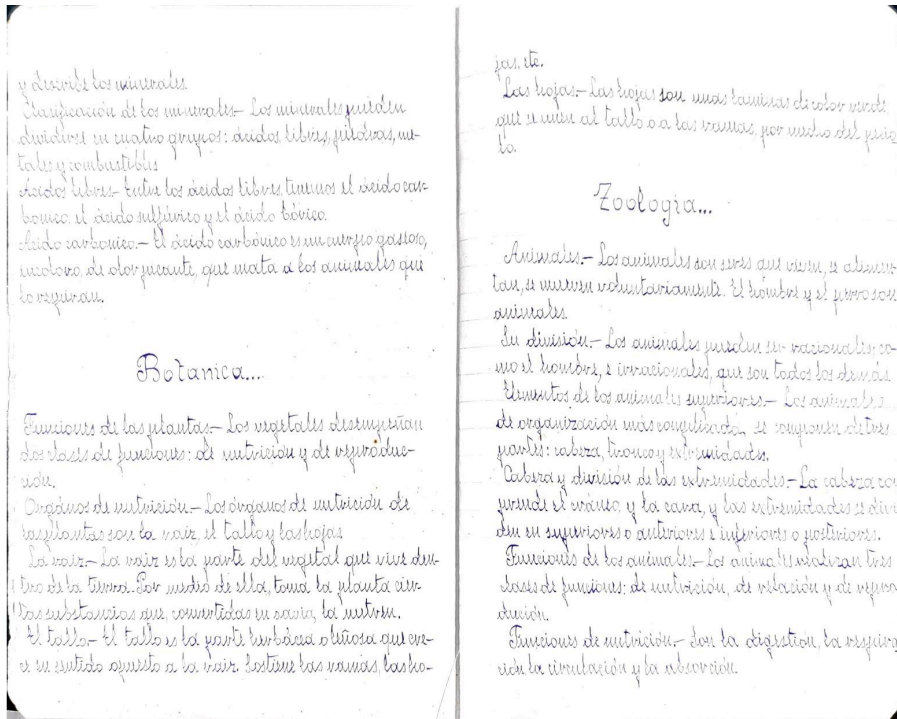 y describe los minerales.
Clasificación de los minerales.- Los minerales pueden
dividirse en cuatro grupos: ácidos libres, piedras, me-
tales y combustibles
Ácidos libres- Entre los ácidos libres, tenemos el ácido car-
bonico, el ácido sulfúrico y el ácido bórico.
Ácido carbonico.- El ácido carbónico es un cuerpo gaseoso,
incoloro, de olor picante, que mata a los animales que
lo respiran.
Botanica...
Funciones de las plantas.- Los vegetales desempeñan
dos clases de funciones: de nutrición y de reproduc-
ción.
Orgános de nutrición.- Los órganos de nutrición de
las plantas son la raiz, el tallo y las hojas
La raiz.- La raiz es la parte del vegetal que vive den-
tro de la tierra. Por medio de ella, toma la planta cier-
tas substancias que, convertidas en savia, la nutren.
El tallo.- El tallo es la parte herbácea o leñosa que cre-
ce en sentido opuesto a la raiz. Sostiene las ramas, las ho-
jas, etc.
Las hojas.- Las hojas son unas laminas de color verde
que se unen al tallo o a las ramas, por medio del pecio
lo.
Zoologia...
Animales.- Los animales son seres que viven, se alimen-
tan, se mueven voluntariamente. El hombre y el perro son
animales.
Su división.- Los animales pueden ser racionales; co-
mo el hombre, e irracionales, que son todos los demás
Elementos de los animales superiores.- Los animales
de organización más complicada, se componen de tres
partes: cabeza, tronco y extremidades.
Cabeza y división de las extremidades.- La cabeza com
prende el cráneo y la cara, y las extremidades se divi
den en superiores o anteriores e inferiores o posteriores.
Funciones de los animales.- Los animales realizan tres
clases de funciones: de nutrición, de relación y de repro
dución.
Funciones de nutrición.- Son la digestión, la respira
ción la circulación y la absorción.